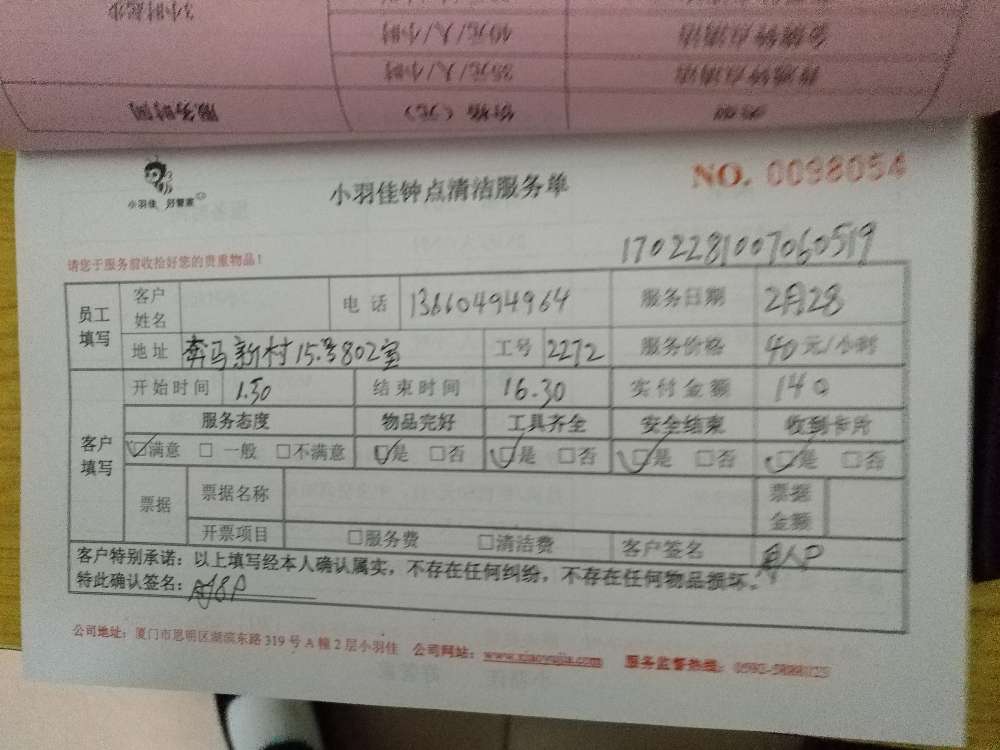 3小时起步
40元/人/小时
金牌钟点清洁
35元/人/小时
普通钟点清洁
服务时间 价格（元） 类型
小羽佳 好管家
小羽佳钟点清洁服务单
NO. 0098054
1702281007060519
请您于服务前收拾好您的贵重物品！
员工填写 客户姓名 电话 13660494964 服务日期 2月28
地址 奔马新村15号802室 工号 2272 服务价格 40元/小时
客户填写 开始时间 1.30 结束时间 16.30 实付金额 140
服务态度 物品完好 工具齐全 安全结束 收到卡片
☑满意 □一般 □不满意 ☑是 □否 ☑是 □否 ☑是 □否 ☑是 □否
票据 票据名称 票据金额
开票项目 □服务费 □清洁费 客户签名
客户特别承诺：以上填写经本人确认属实，不存在任何纠纷，不存在任何物品损坏。
特此确认签名：
公司地址：厦门市思明区湖滨东路319号A幢2层小羽佳 公司网站：www.xiaoyujia.com 服务监督热线：